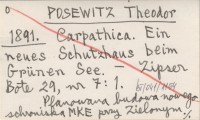 POSEWITZ Theodor
1891. Carpathica. Ein
neues Schutzhaus beim
Grünen See. – Zipser
Bote 29, nr 7: 1.
Planowana budowa nowego
schroniska MKE przy Zielonym